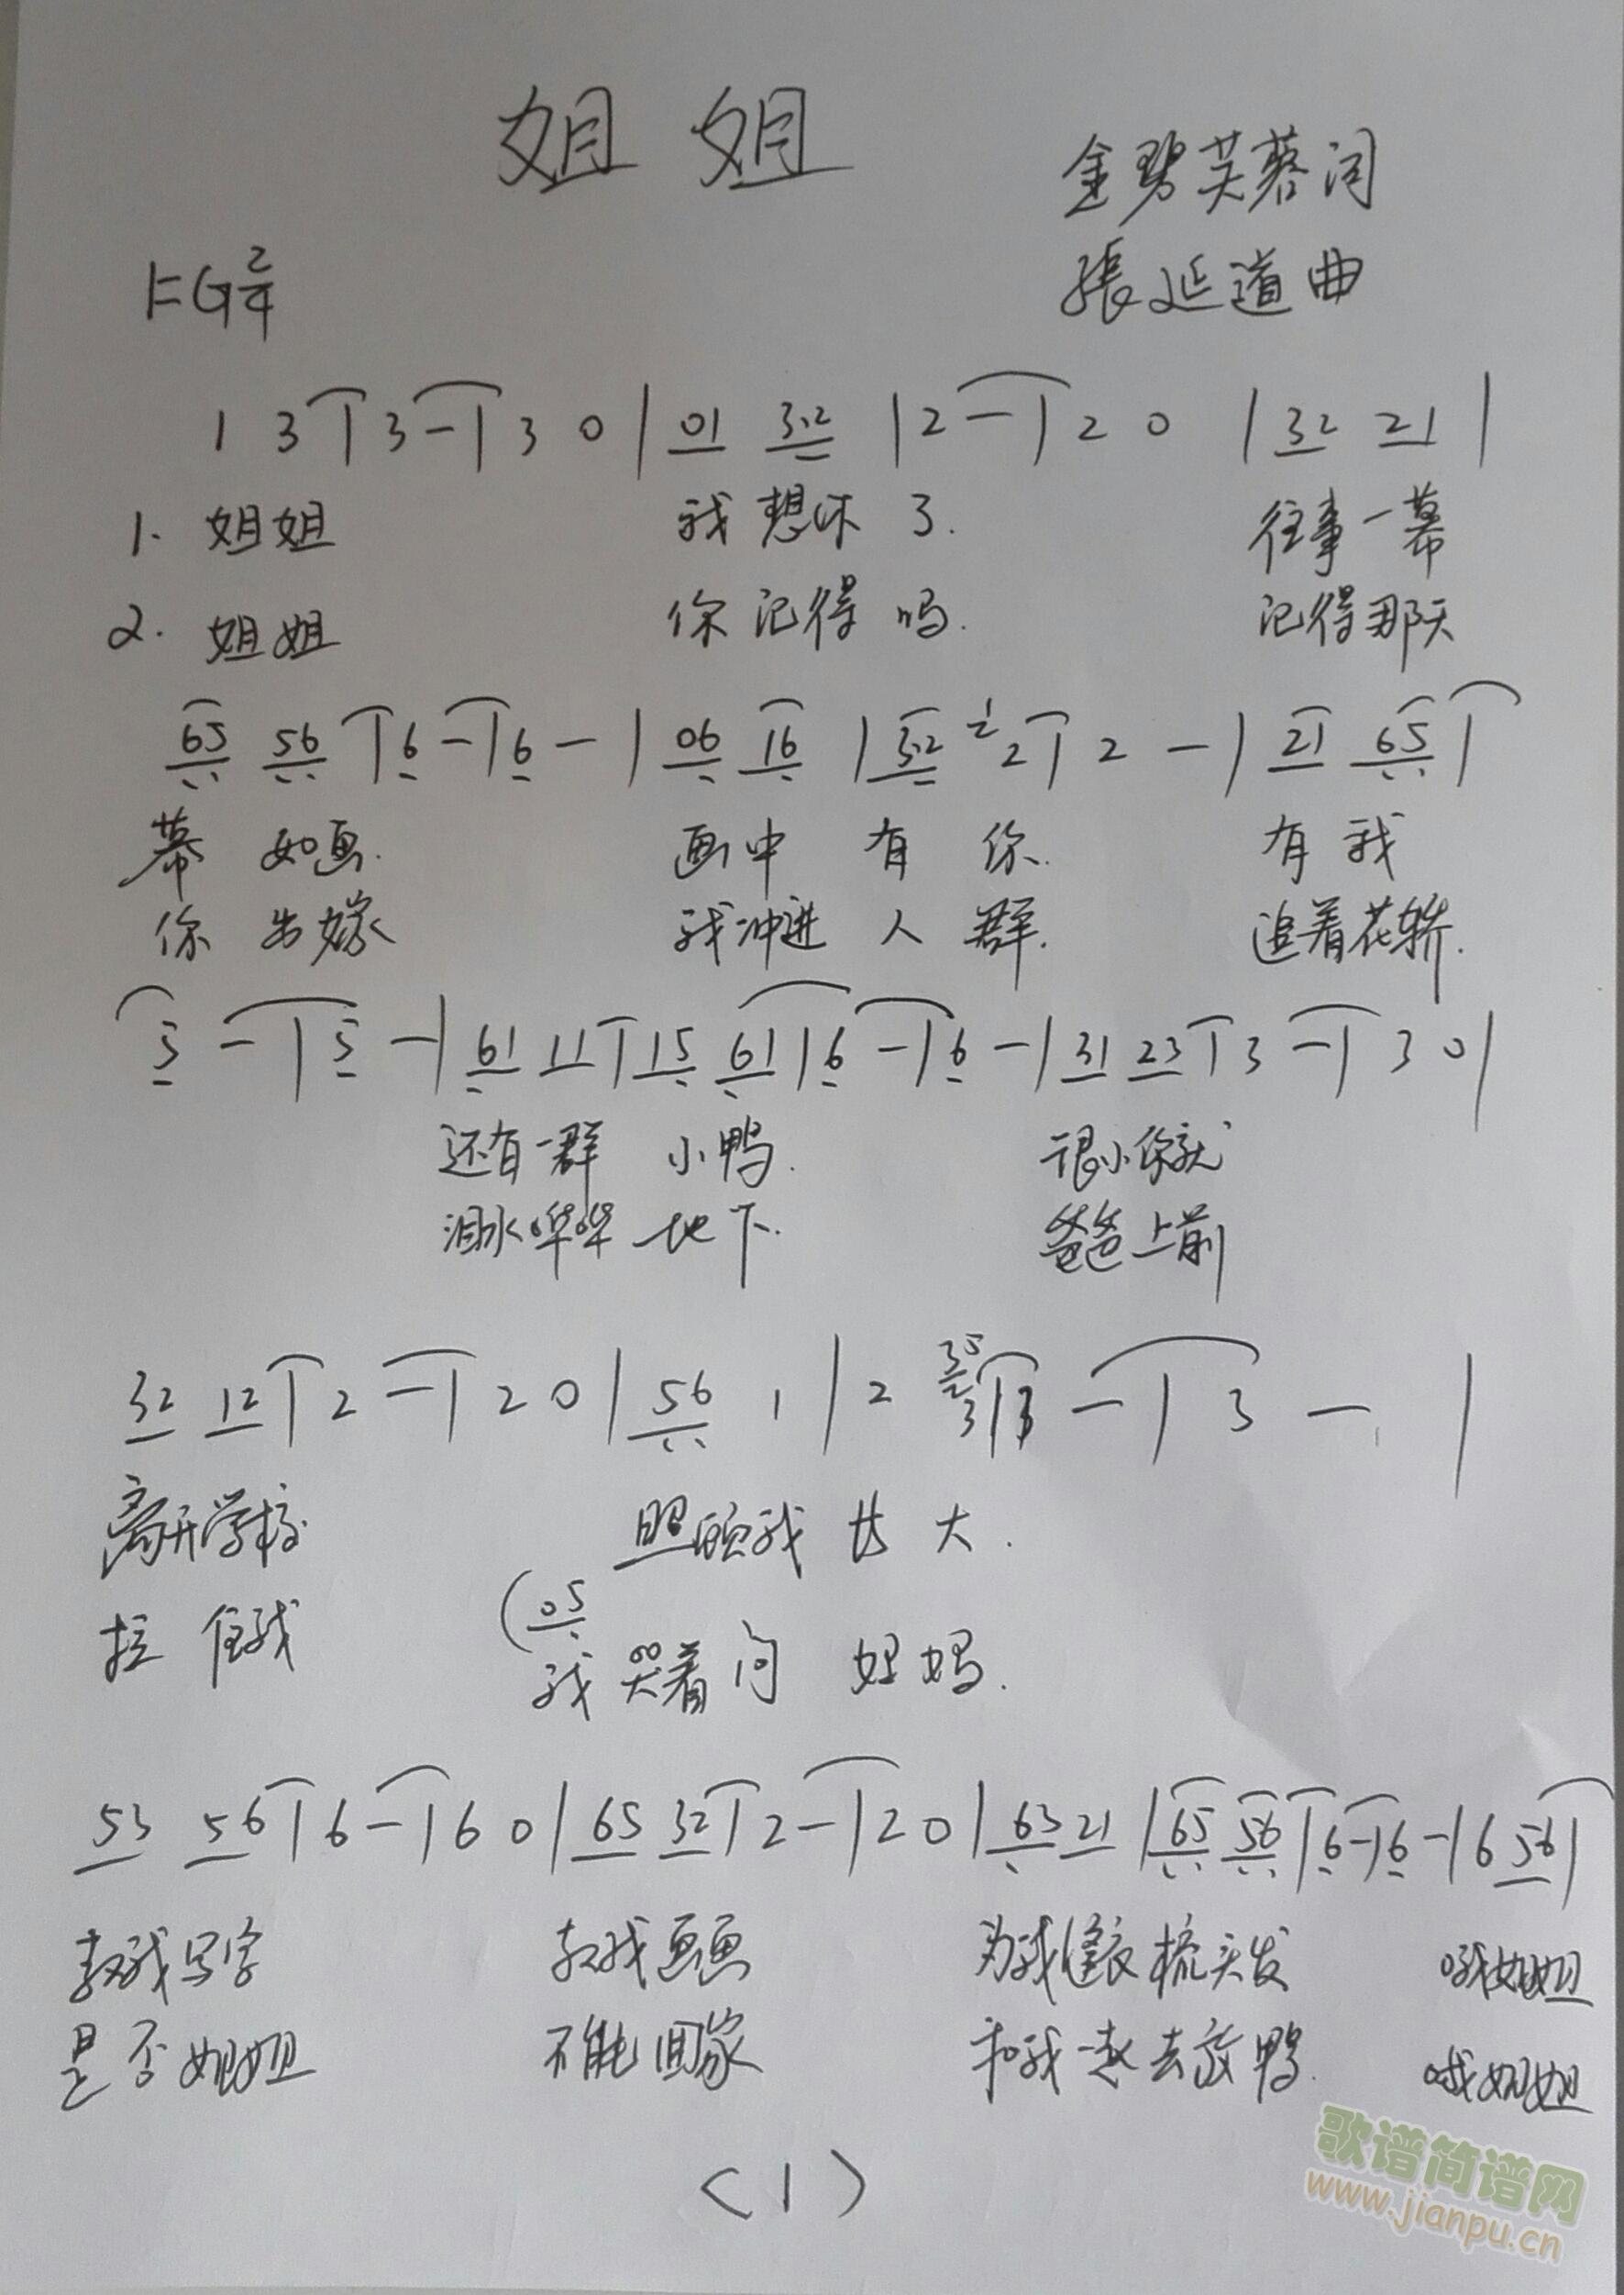 姐姐
金碧芙蓉词
1=G 2/4
張延道曲
1 3 | 3 - | 3 0 | 01 3.2 | 2 - | 2 0 | 32 21 |
1. 姐姐 我想你了. 往事一幕
2. 姐姐 你记得吗. 记得那天
65 56 | 6 - | 6 - | 06 16 | 3.2 2 | 2 - | 21 65 |
幕 如画. 画中 有 你. 有我
你 出嫁 我冲进 人 群. 追着花轿.
5 - | 5 - | 61 11 | 15 61 | 6 - | 6 - | 31 23 | 3 - | 3 0 |
还有一群 小鸭. 很小你就
泪水哗哗 地下. 爸爸上前
32 12 | 2 - | 2 0 | 56 1 | 2 35 3 | 3 - | 3 - |
离开学校 照顾我 长大.
(05
拉 住我 我哭着问 妈妈.
53 56 | 6 - | 6 0 | 65 32 | 2 - | 2 0 | 63 21 | 65 56 | 6 - | 6 - | 6 56 |
教我写字 教我画画 为我缝衣梳头发 哦姐姐
是否姐姐 不能回家 和我一起去放鸭. 哦姐姐
(1)
歌谱简谱网
www.jianpu.cn